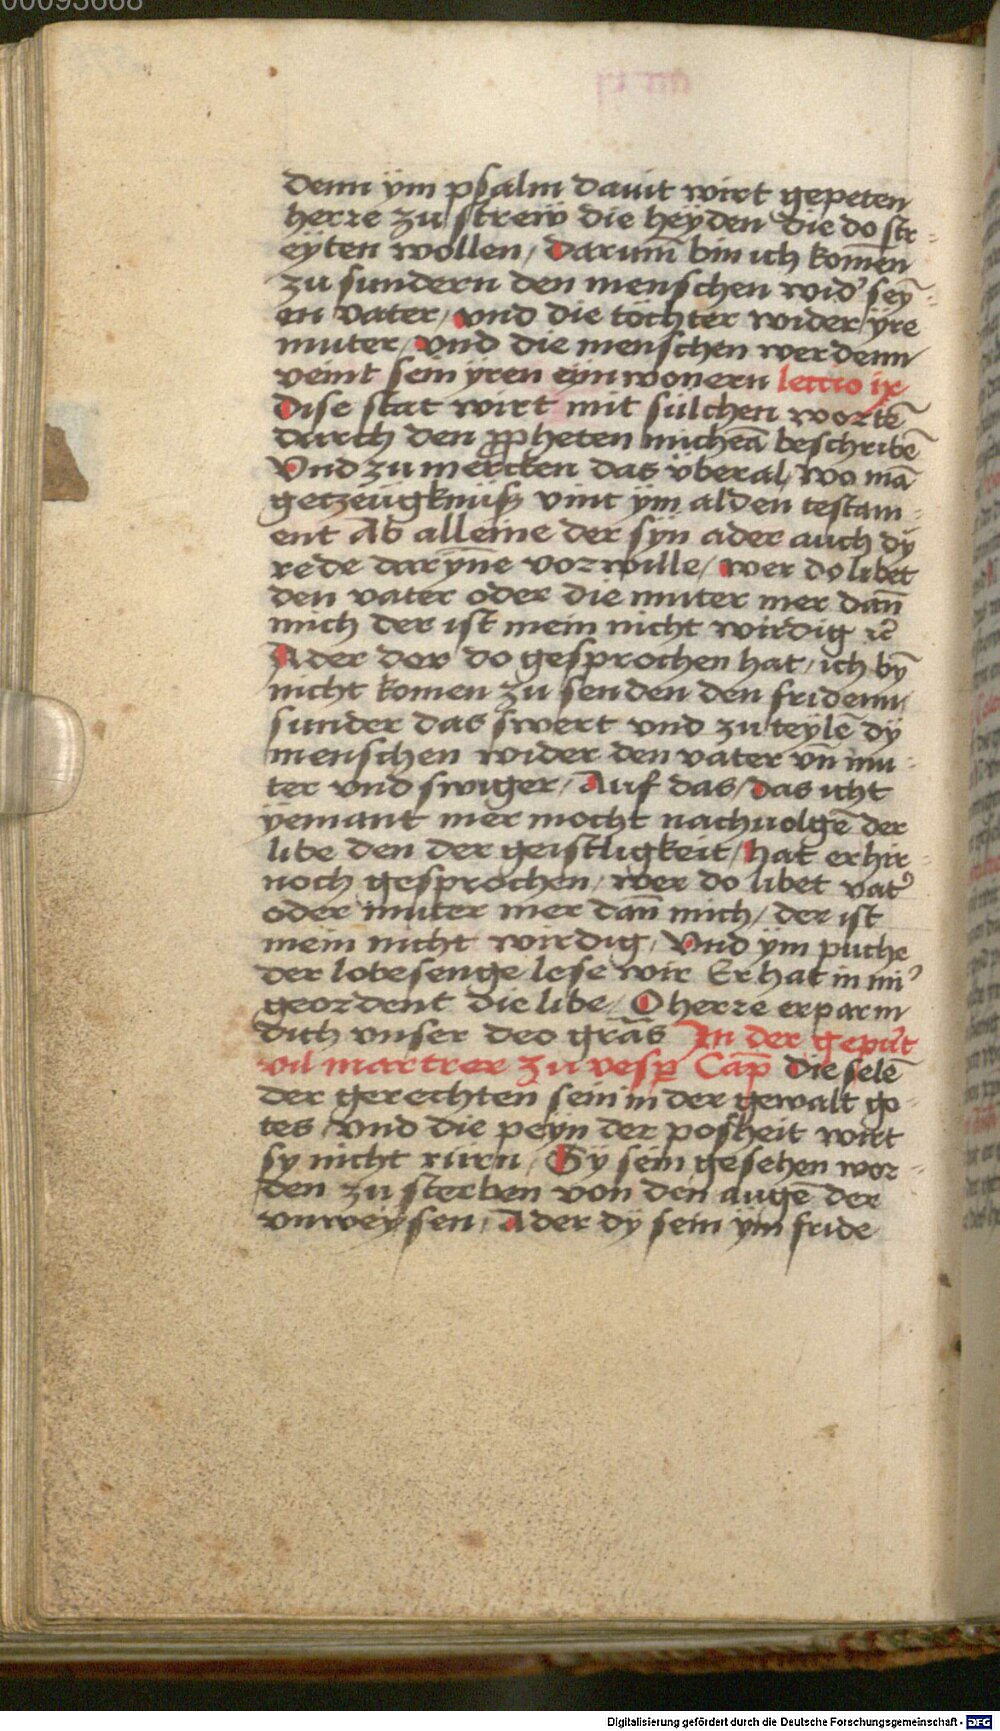 00093668
denn ym psalm dauit wirt gepeten
herre zu strew die heyden die do str-
eyten wollen / Darum̄ bin ich kom̄en
zu sundern den menschen wid' sey̅-
en vater / vnd die tochter wider yre
muter / vnd die menschen werdenn
veint sein yren einwonern lectio ix
Dise stat wirt mit sulchen wortē
durch den ꝓpheten micheā beschribē
Vnd zu mercken das vberal wo mā
getzeugknuß vint ym alden testam-
ent Ab alleine der syn ader auch dy
rede daryn̄e vorwille / wer do libet
den vater oder die muter mer dan̄
mich der ist mein nicht wirdig
Ader der do gesprochen hat / ich by̅
nicht komen zu senden den fridenn
sunder das swert vnd zu teylē dy
menschen wider den vater vn̄ mu-
ter vnd swiger / Auf das / das icht
yemant mer mocht nachuolgē der
libe den der geistligkeit / hat er hir-
noch gesprochen / wer do libet vat'
oder muter mer dan̄ mich / der ist
mein nicht wirdig / Vnd ym puche
der lobesenge lese wir Er hat in mi'
geordent die libe / O herre erparm
dich vnser deo grās In der gepurt
vil martrer zu vesp Cap̄ Die selē
der gerechten sein in der gewalt go-
tes / vnd die peyn der posheit wirt
sy nicht rurn / Sy sein gesehen wor-
den zu sterben von den augē der
vnweysen / Ader dy sein ym fride
Digitalisierung gefördert durch die Deutsche Forschungsgemeinschaft - DFG